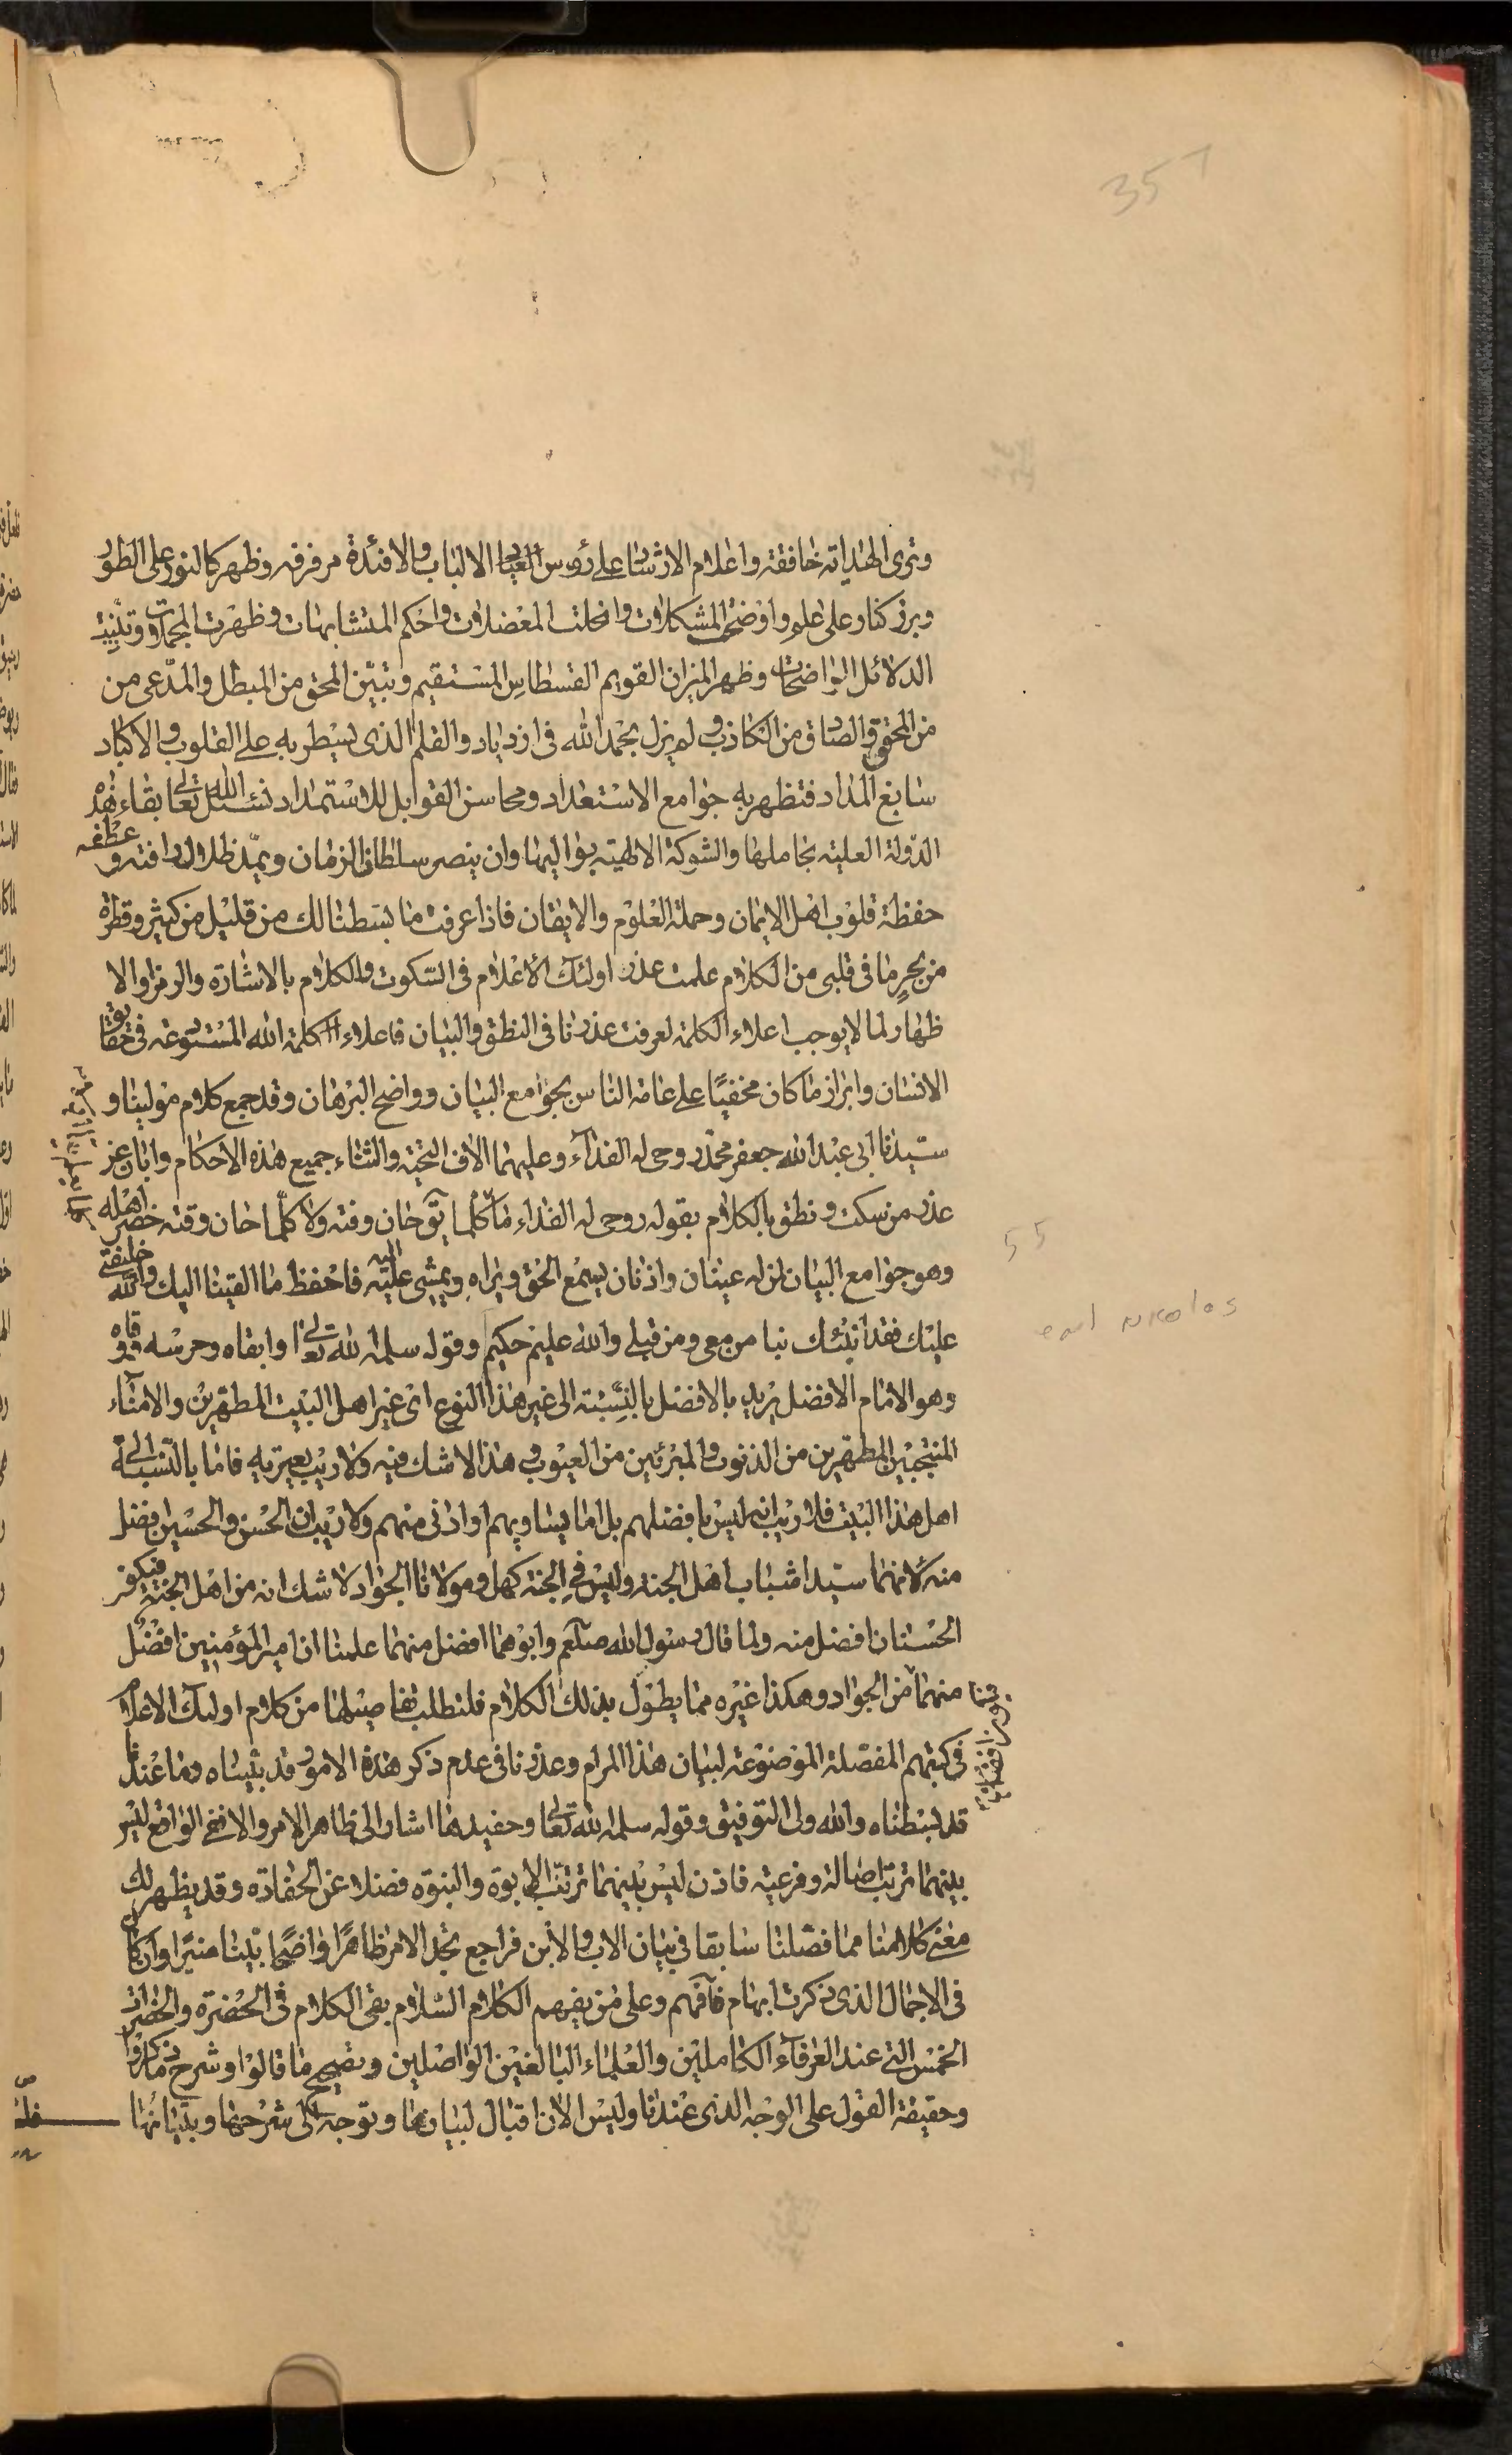 357
وترى الهداية خافقة واعلام الارشاد على رؤس الالباب والافئدة مرفرفة وظهر كالنور على الطور
وبرز كنار على علم واوضح المشكلات وانحلت المعضلات واحكم المتشابهات وظهرت المجملات و
الدلائل الواضحات وظهر الميزان القويم القسطاس المستقيم وتبين المحق من المبطل والمدعى من
من المحقق والصادق من الكاذب و لم يزل بحمد الله فى ازدياد والقلم الذى يسطر به على القلوب والاكباد
سابغ المداد فتظهر به جوامع الاستعداد ومحاسن القوابل للاستمداد نسئل الله تعالى بقاء هذه
الدولة العلية بحاملها والشوكة الالهية بواليها وان ينصر سلطان الزمان ويمد ظلال رافته و عطفه
حفظة قلوب اهل الايمان وحملة العلوم والايقان فاذا عرفت ما بسطنا لك من قليل من كثير وقطرة
من بحر ما فى قلبى من الكلام علمت عذر اولئك الاعلام فى السكوت والكلام بالاشارة والرمز والا
ظهار لما لا يوجب اعلاء الكلمة لعرفت عذرنا فى النطق والبيان فاعلاء كلمة الله فى حقايق
الانسان وابراز ما كان مخفيا على عامة الناس بجوامع البيان وواضح البرهان وقد جمع كلام مولينا و
سيدنا ابى عبد الله جعفر بن محمد روحى له الفداء وعليهما الاف التحية والثناء جميع هذه الاحكام وابان عن
عذر من سكت و نطق بالكلام بقوله روحى له الفداء ما كلما يقو حان وقته ولا كلما حان وقته حضر اهله
وهو جوامع البيان لمن له عينان واذنان يسمع الحق ويراه ويمشى اليه فاحفظ ما القينا اليك والله خليفتى
عليك فقد انبئك نبا من معى ومن قبلى والله عليم حكيم وقوله سلمه الله تعالى وابقاه وحرسه ووقاه
وهو الامام الافضل يريد بالافضل بالنسبة الى غير هذا النوع اى غير اهل البيت المطهرين والامناء
المنتجبين المطهرين من الذنوب والمبرئين من العيوب و هذا لا شك فيه ولا ريب يعتريه فاما بالنسبة الى
اهل هذا البيت فلا ريب انه ليس بافضلهم بل اما يساويهم او ادنى منهم ولا ريب ان الحسن والحسين افضل
منه لانهما سيدا شباب اهل الجنة وليس فى الجنة كهل ومولانا الجواد لا شك انه من اهل الجنة فيكون
الحسنان افضل منه ولما قال رسول الله صلعم وابوهما افضل منهما علمنا ان امير المؤمنين افضل
منهما من الجواد وهكذا غيره مما يطول بذلك الكلام فلتطلب تفاصيلها من كلام اولئك الاعلام
فى كتبهم المفصلة الموضوعة لبيان هذا المرام وعذرنا فى عدم ذكر هذه الامور قد بيناه وما عندنا
قد بسطناه والله ولى التوفيق وقوله سلمه الله تعالى وحفيدهما اشار الى ظاهر الامر والا ففى الواقع ليس
بينهما ترتب اصالة وفرعية فاذن ليس بينهما ترتب الابوة والبنوة فضلا عن الحفادة وقد يظهر لك
معنى كلامنا مما فصلنا سابقا فى بيان الاب والابن فراجع تجد الامر ظاهرا واضحا بينا منيرا وان كان
فى الاجمال الذى ذكرت ابهام فافهم وعلى من يفهم الكلام السلام بقى الكلام فى الحضرة والحضرات
الخمس التى عند العرفاء الكاملين والعلماء البالغين الواصلين وتصحيح ما قالوا وشرح ما ذكروا
وحقيقة القول على الوجه الذى عندنا وليس الان اقبال لبيانها وتوجه الى شرحها وتبيانها
55